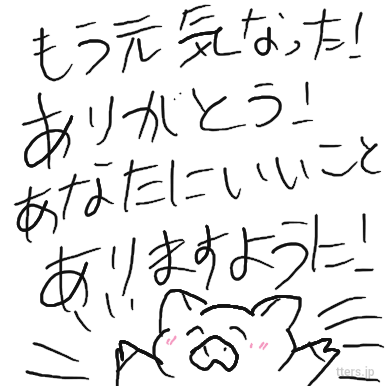 もう元気なった!
ありがとう!
あなたにいいこと
ありますように!
tters.jp